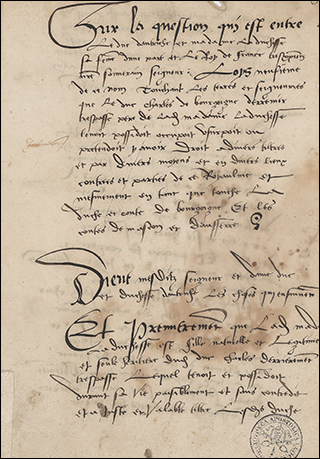 Sur la question qui est entre
Le duc daultriche et madame La duchesse
sa femme dune part et Le Roy de france
nre souverain seigneur Loys unziesme
de ce nom Touchant Les terres et seigneuries
que Le duc Charles de bourgoigne derrenier
trespasse pere de Lad madame La duchesse
tenoit possidoit occupoit usurpoit ou
pretendoit y avoir droit a divers tiltres
et par divers moyens et en divers lieux
contrees et parties de ce Royaulme et
mesmement en tant que touche La
duche et conte de bourgoigne Et les
contes de mascon et dausserre
Dient mesditz seigneur et dame duc
et duchesse daultriche Les choses qui ensuivent
Et Premierement que Lad mad
La duchesse est fille naturelle et Legitime
et seule heritiere dud duc Charles derrenier
trespasse Lequel tenoit et possidoit
durant sa vie paisiblement et sans contredit
et a juste et valable tiltre Lesd duche